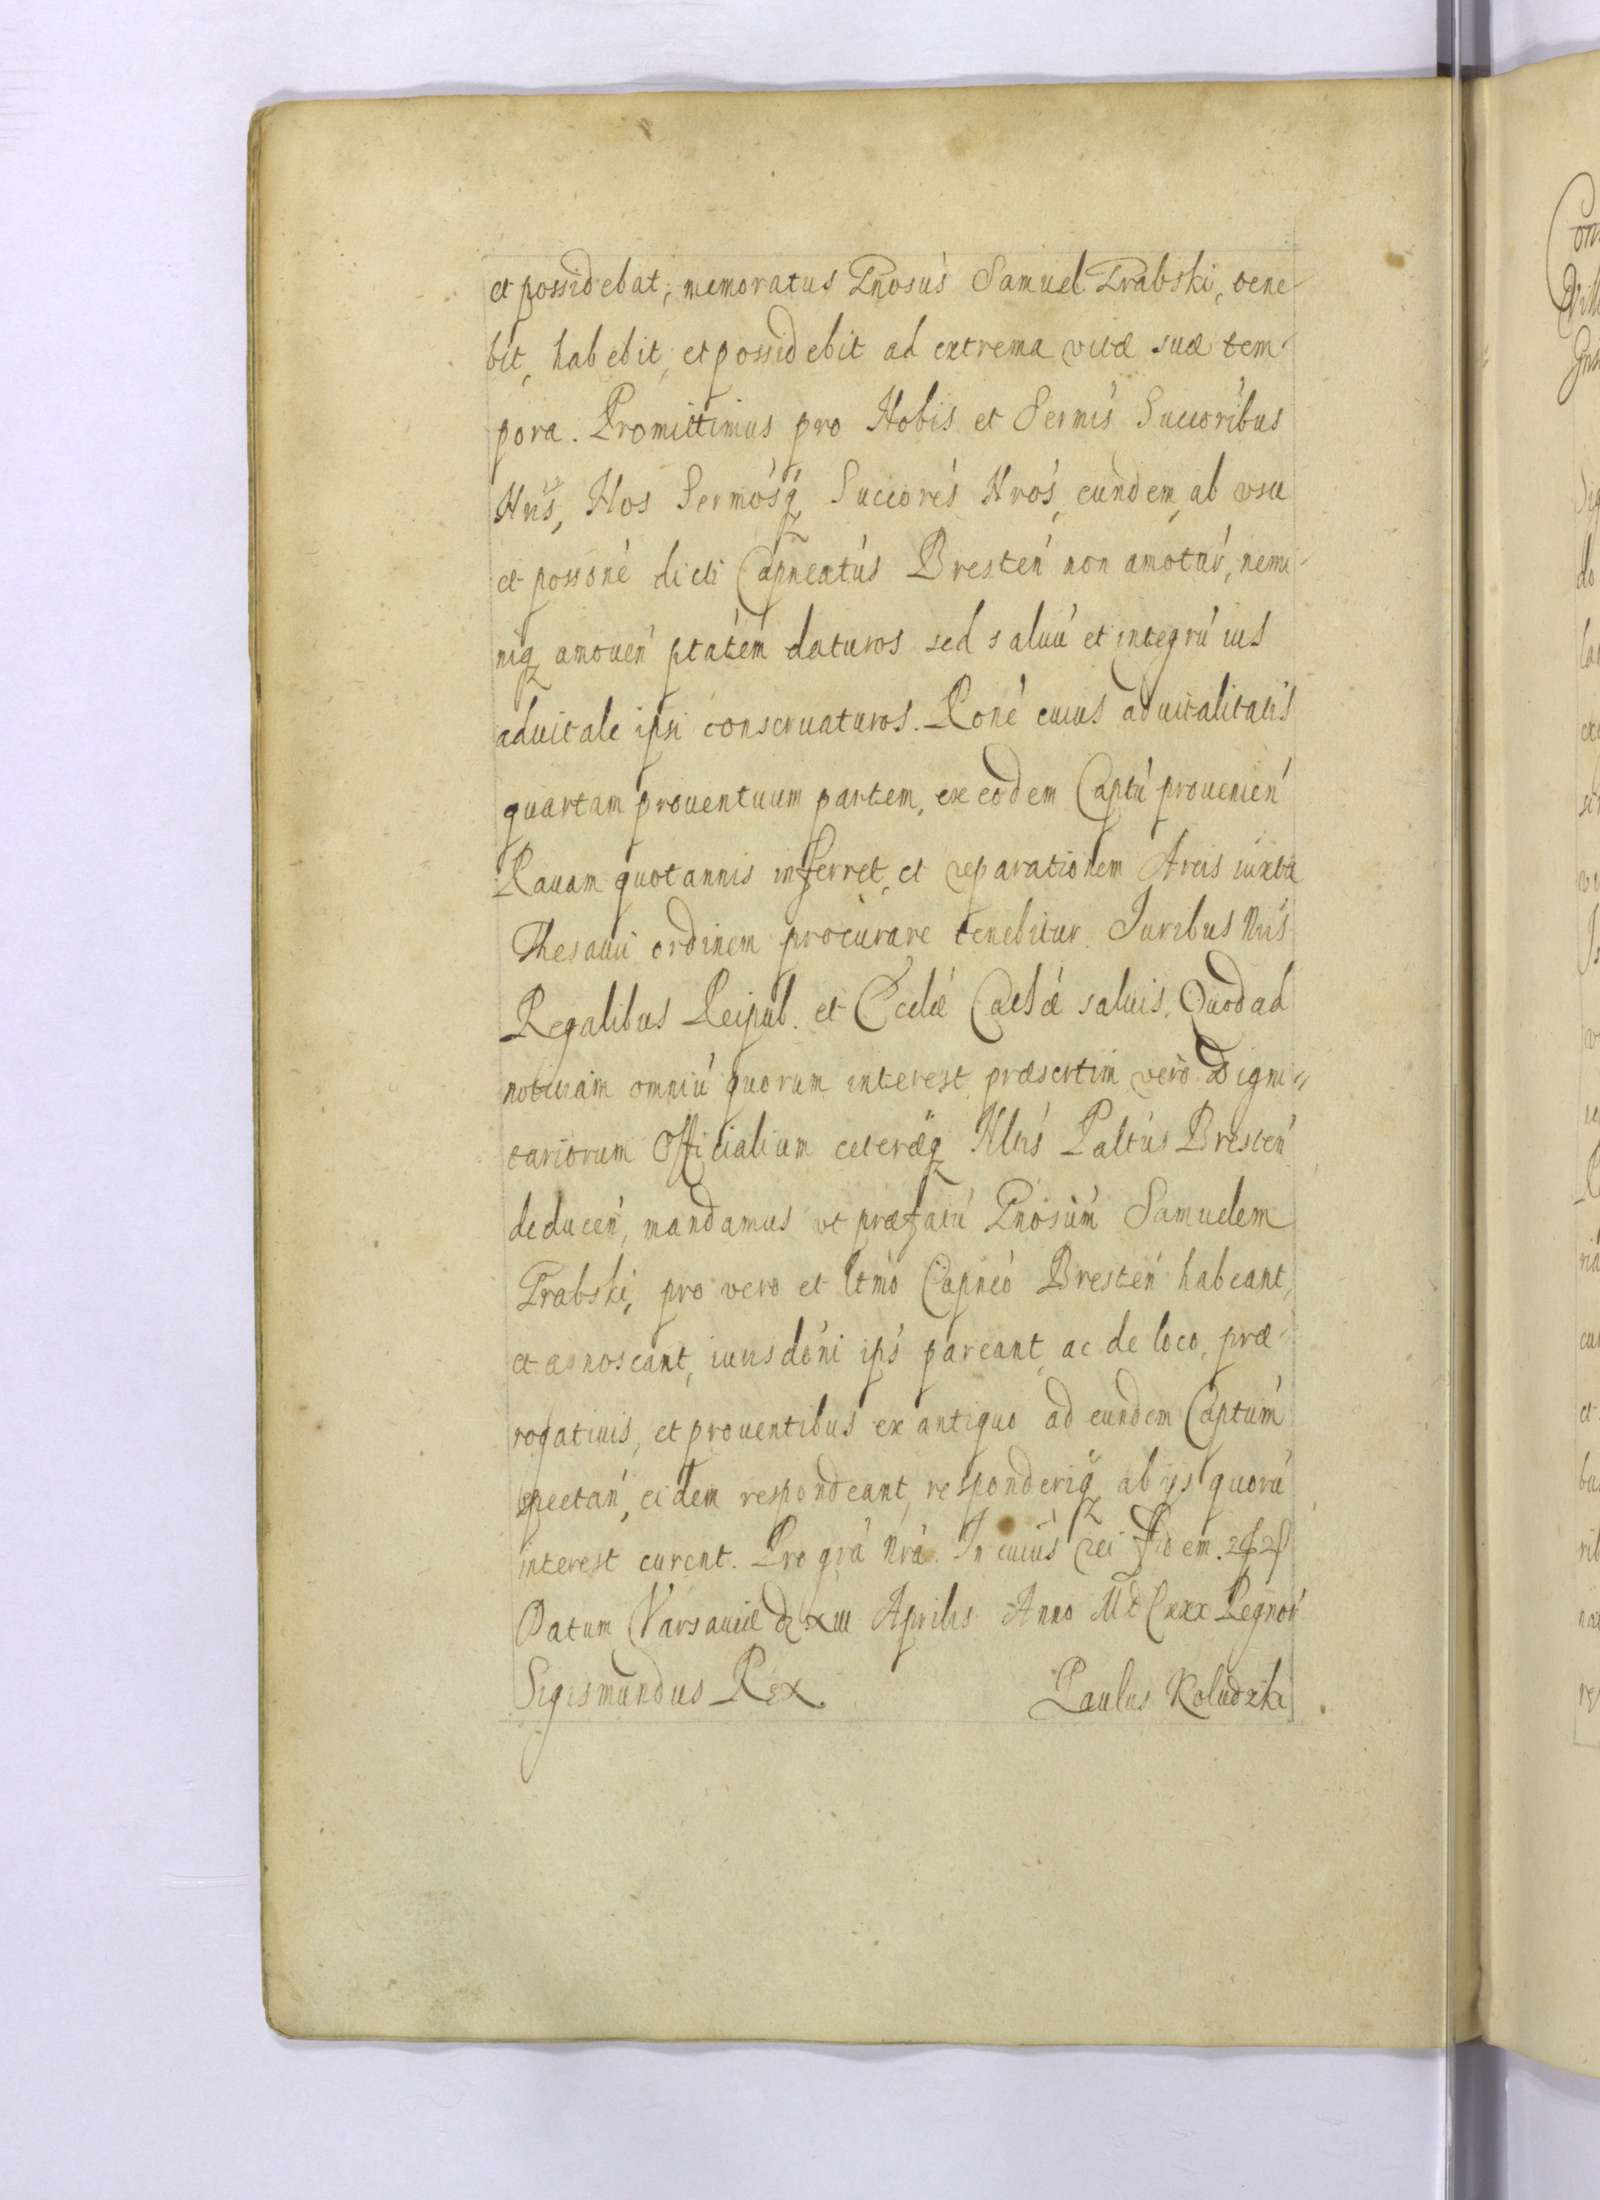 et possidebat, memoratus Gnosus Samuel Grabski, tene-
bit, habebit, et possidebit ad extrema vitæ suæ tem-
pora. Promittimus pro Nobis et Sermis Succoribus
Nris, Nos Sermosq Succores Nros, eundem, ab vsu
et possone dicti Capneatus Bresten non amotur, nemi-
niq amouen ptatem daturos sed saluu et integru ius
aduitale ipsi conseruaturos. Rone cuius aduitalitatis
quartam prouentuum partem, ex eodem Captu prouenien
Rauam quotannis inferret, et reparationem Arcis iuxta
Thesauri ordinem procurare tenebitur. Juribus Nris
Regalibus Reipub. et Ecclæ Cathæ saluis. Quod ad
notitiam omniu quorum interest, præsertim vero Digni-
tariorum Officialium ceterosq Nltis Paltus Bresten
deducen, mandamus vt præfatu Gnosum Samuelem
Grabski, pro vero et ltmo Capneo Bresten habeant,
et agnoscant, iurisdoni ips pareant, ac de loco, præ-
rogatiuis, et prouentibus ex antiquo ad eundem Captum
spectan, eidem respondeant, responderiq ab ijs quoru
interest curent. Pro gra Nra. In cuius rei fidem.
Datum Varsauiæ d. XIII Aprilis Anno MDCXXX Regnor
Sigismundus Rex Paulus Koludzki